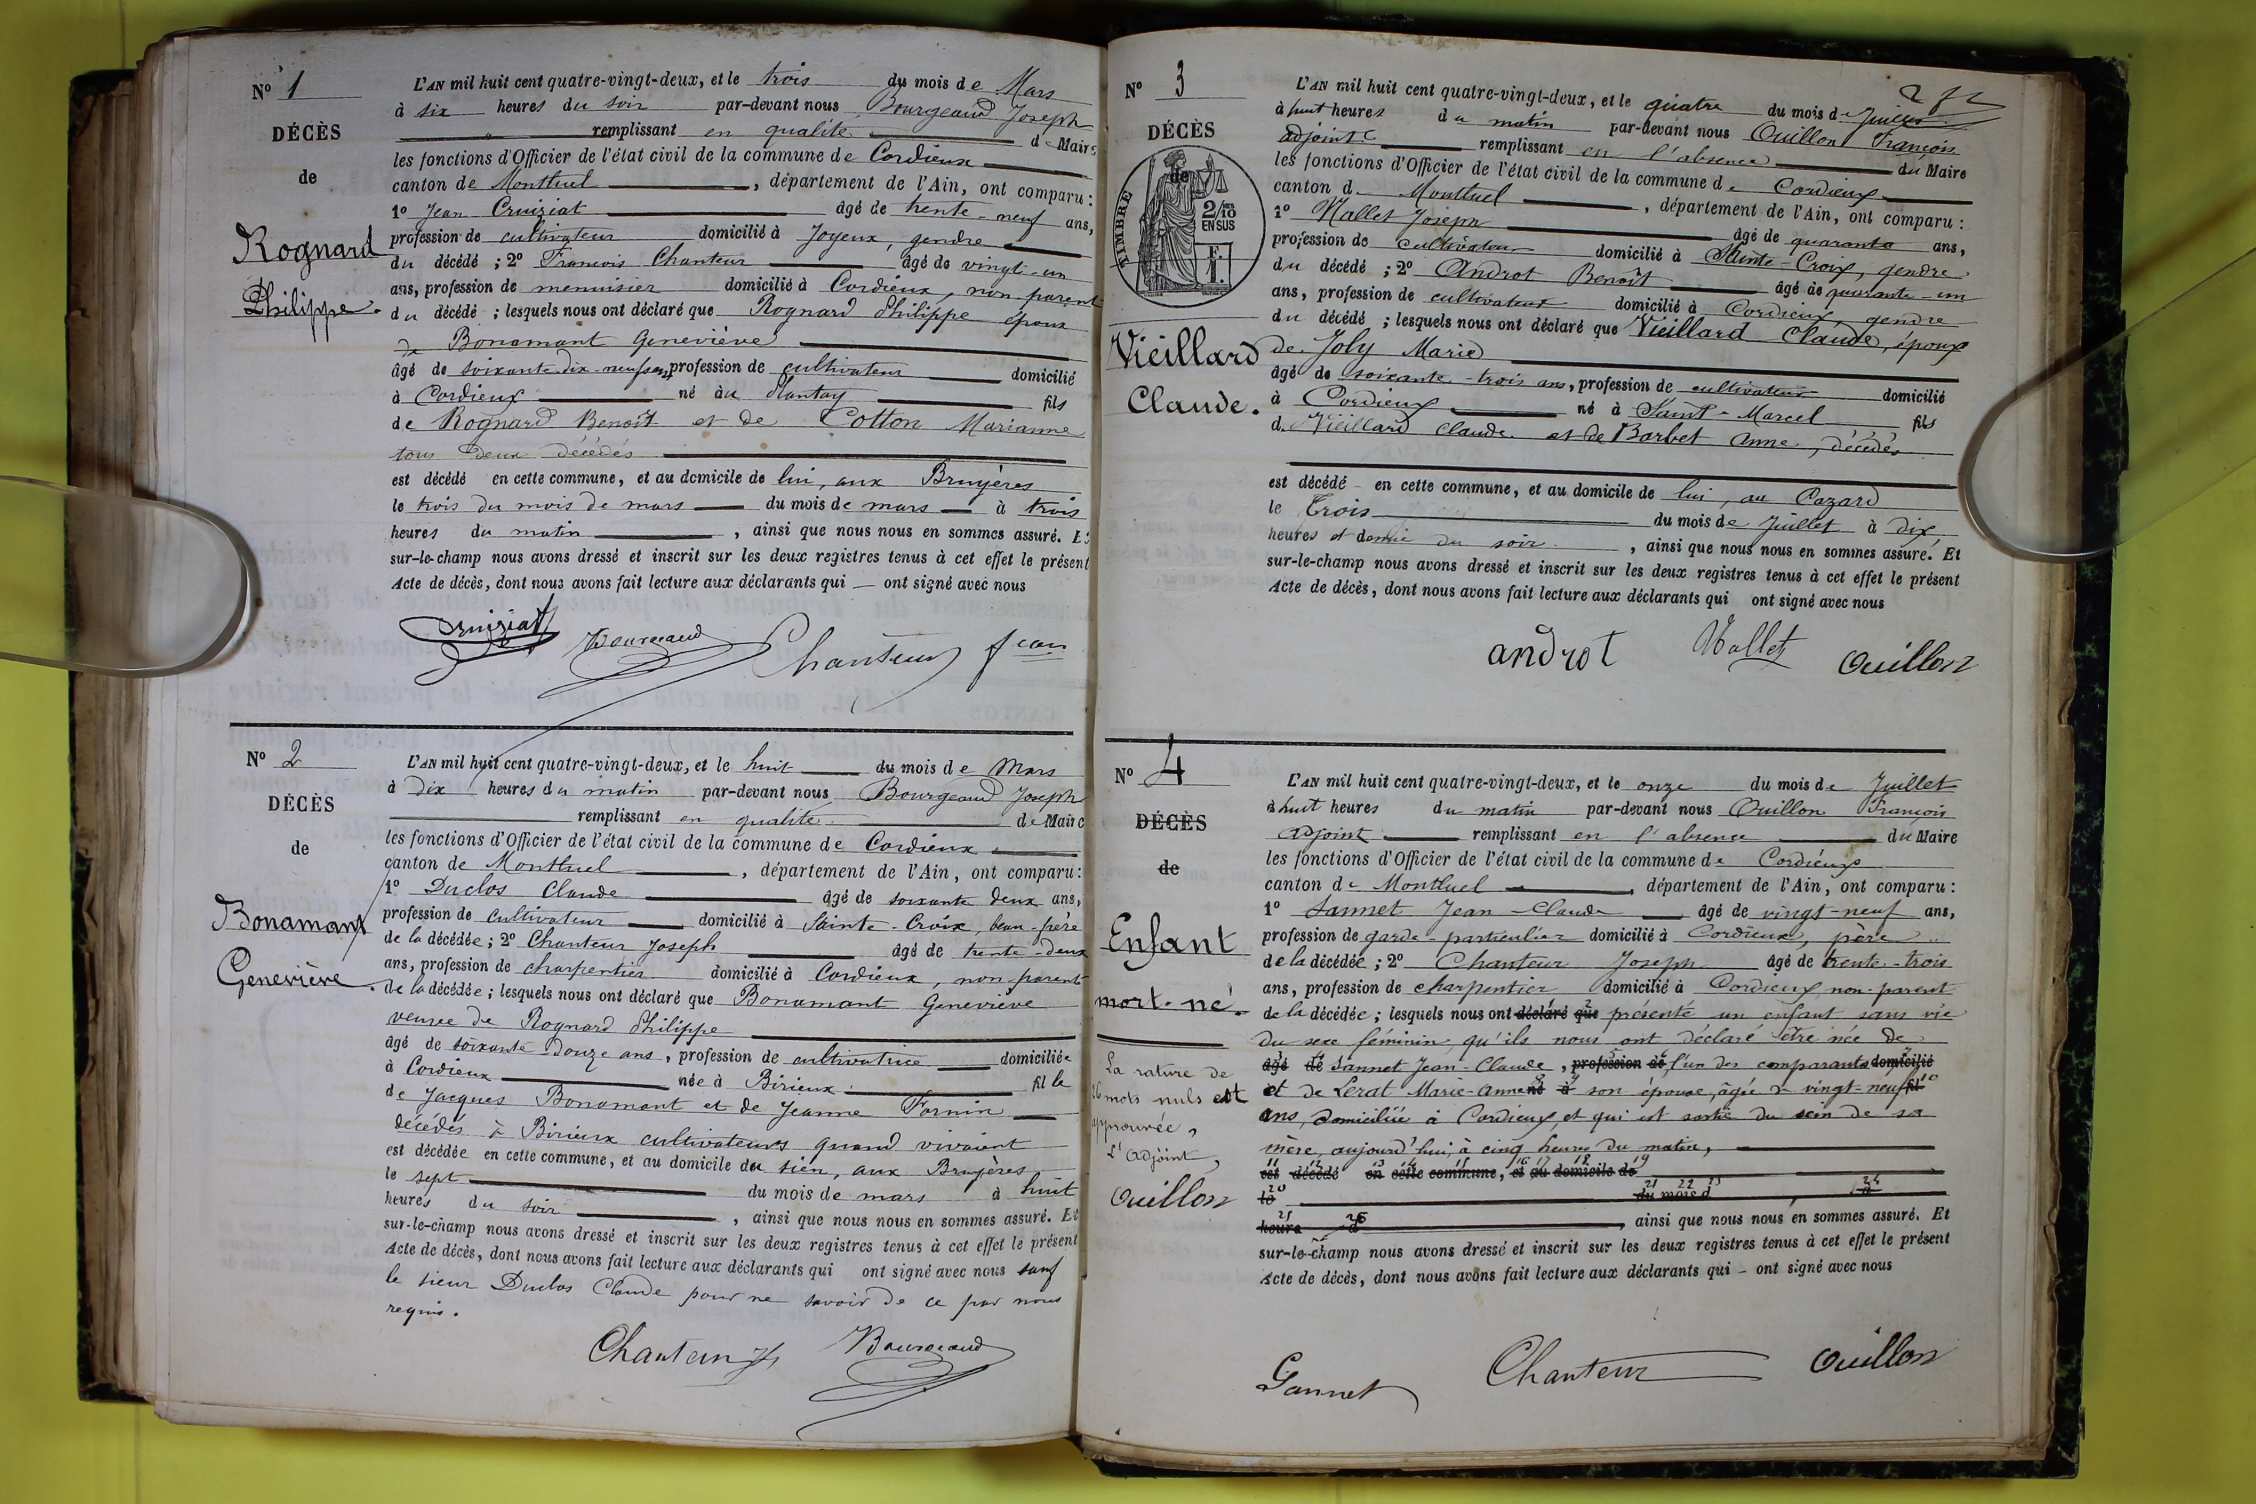 N° 1
DÉCÈS
de
Rognard
Philippe.
L'AN mil huit cent quatre-vingt-deux, et le trois du mois de Mars
à six heures du soir par-devant nous Bourgeaud Joseph
remplissant en qualité de Maire
les fonctions d'Officier de l'état civil de la commune de Cordieux
canton de Montluel, département de l'Ain, ont comparu :
1° Jean Cruiziat âgé de trente-neuf ans,
profession de cultivateur domicilié à Joyeux, gendre
du décédé ; 2° François Chanteur âgé de vingt-un
ans, profession de menuisier domicilié à Cordieux, non parent
du décédé ; lesquels nous ont déclaré que Rognard Philippe époux
de Bonamant Geneviève
âgé de soixante dix-neuf ans, profession de cultivateur domicilié
à Cordieux né au Plantay fils
de Rognard Benoît et de Cotton Marianne
tous deux décédés
est décédé en cette commune, et au domicile de lui, aux Bruyères
le trois du mois de mars du mois de mars à trois
heures du matin, ainsi que nous nous en sommes assuré. Et
sur-le-champ nous avons dressé et inscrit sur les deux registres tenus à cet effet le présent
Acte de décès, dont nous avons fait lecture aux déclarants qui — ont signé avec nous
Cruiziat Bourgeaud Chanteur fcois
N° 2
DÉCÈS
de
Bonamant
Geneviève.
L'AN mil huit cent quatre-vingt-deux, et le huit du mois de Mars
à Dix heures du matin par-devant nous Bourgeaud Joseph
remplissant en qualité de Maire
les fonctions d'Officier de l'état civil de la commune de Cordieux
canton de Montluel, département de l'Ain, ont comparu :
1° Duclos Claude âgé de soixante deux ans,
profession de cultivateur domicilié à Sainte-Croix, beau-frère
de la décédée ; 2° Chanteur Joseph âgé de trente-deux
ans, profession de charpentier domicilié à Cordieux, non parent
de la décédée ; lesquels nous ont déclaré que Bonamant Geneviève
veuve de Rognard Philippe
âgé de soixante-douze ans, profession de cultivatrice domiciliée
à Cordieux née à Birieux fille
de Jacques Bonamant et de Jeanne Fornin
décédés à Birieux cultivateurs quand vivaient
est décédée en cette commune, et au domicile du sien, aux Bruyères
le sept du mois de mars à huit
heures du soir, ainsi que nous nous en sommes assuré. Et
sur-le-champ nous avons dressé et inscrit sur les deux registres tenus à cet effet le présent
Acte de décès, dont nous avons fait lecture aux déclarants qui ont signé avec nous sauf
le sieur Duclos Claude pour ne savoir de ce par nous
requis.
Chanteur Bourgeaud
N° 3
DÉCÈS
de
TIMBRE
2/10
EN SUS
Vieillard
Claude.
L'AN mil huit cent quatre-vingt-deux, et le quatre du mois de Juillet
à huit heures du matin par-devant nous Ouillon François
adjoint remplissant en l'absence du Maire
les fonctions d'Officier de l'état civil de la commune de Cordieux
canton de Montluel, département de l'Ain, ont comparu :
1° Mallet Joseph âgé de quarante ans,
profession de cultivateur domicilié à Sainte-Croix, gendre
du décédé ; 2° Androt Benoît âgé de quarante-un
ans, profession de cultivateur domicilié à Cordieux, gendre
du décédé ; lesquels nous ont déclaré que Vieillard Claude, époux
de Joly Marie
âgé de soixante-trois ans, profession de cultivateur domicilié
à Cordieux né à Saint-Marcel fils
de Vieillard Claude et de Barbet Anne, décédés
est décédé en cette commune, et au domicile de lui, au Cazard
le Trois du mois de Juillet à dix
heures et demie du soir, ainsi que nous nous en sommes assuré. Et
sur-le-champ nous avons dressé et inscrit sur les deux registres tenus à cet effet le présent
Acte de décès, dont nous avons fait lecture aux déclarants qui ont signé avec nous
androt Mallet Ouillon
N° 4
DÉCÈS
de
Enfant
mort-né.
La rature de
26 mots nuls est
approuvée,
L'Adjoint,
Ouillon
L'AN mil huit cent quatre-vingt-deux, et le onze du mois de Juillet
à huit heures du matin par-devant nous Ouillon François
Adjoint remplissant en l'absence du Maire
les fonctions d'Officier de l'état civil de la commune de Cordieux
canton de Montluel, département de l'Ain, ont comparu :
1° Sannet Jean-Claude âgé de vingt-neuf ans,
profession de garde-particulier domicilié à Cordieux, père
de la décédée ; 2° Chanteur Joseph âgé de trente-trois
ans, profession de charpentier domicilié à Cordieux, non-parent
de la décédée ; lesquels nous ont déclaré que présenté un enfant sans vie
du sexe féminin, qu'ils nous ont déclaré être née de
âgé de Sannet Jean-Claude, profession de l'un des comparants domicilié
et de Lerat Marie-Anne né à son épouse, âgée de vingt-neuf fil
ans, domiciliée à Cordieux, et qui est sortie du sein de sa
mère, aujourd'hui, à cinq heures du matin,
est décédé en cette commune, et au domicile de
le du mois d à
heure d, ainsi que nous nous en sommes assuré. Et
sur-le-champ nous avons dressé et inscrit sur les deux registres tenus à cet effet le présent
Acte de décès, dont nous avons fait lecture aux déclarants qui — ont signé avec nous
Sannet Chanteur Ouillon